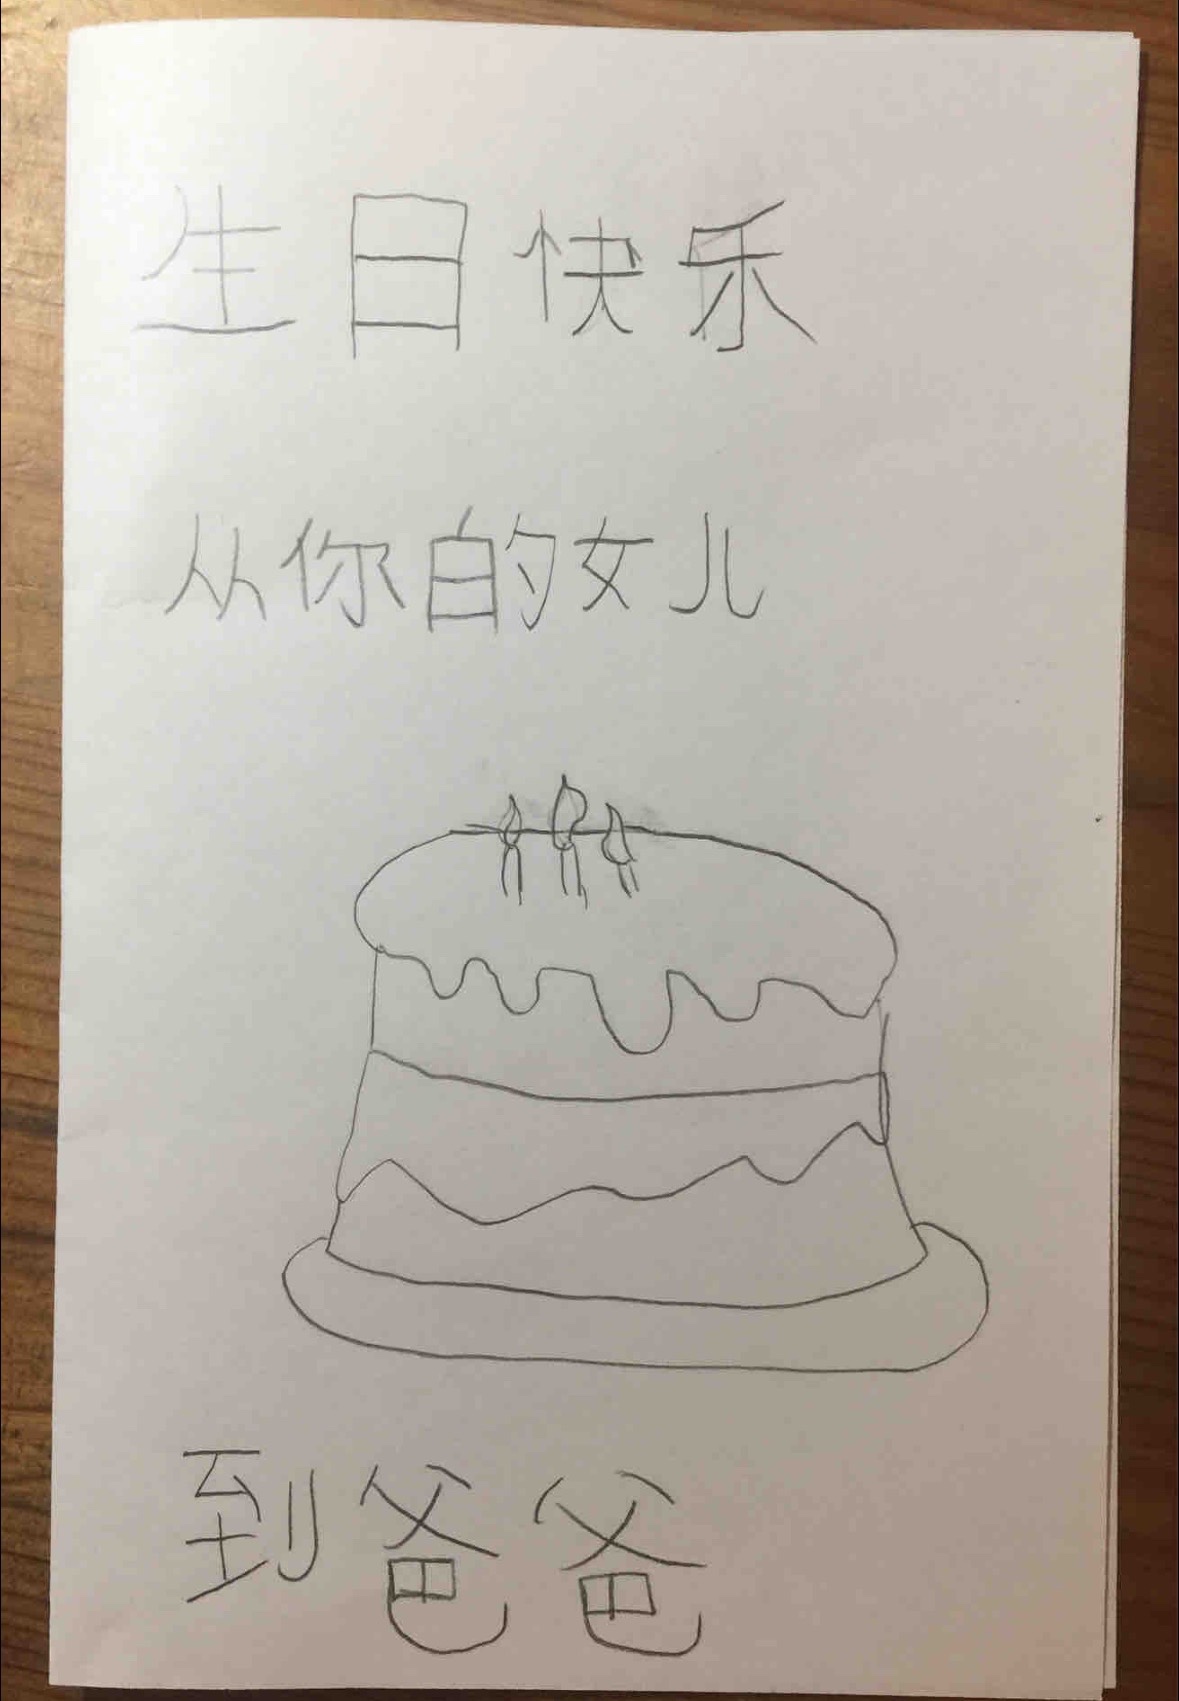 生日快乐
从你的女儿
到爸爸